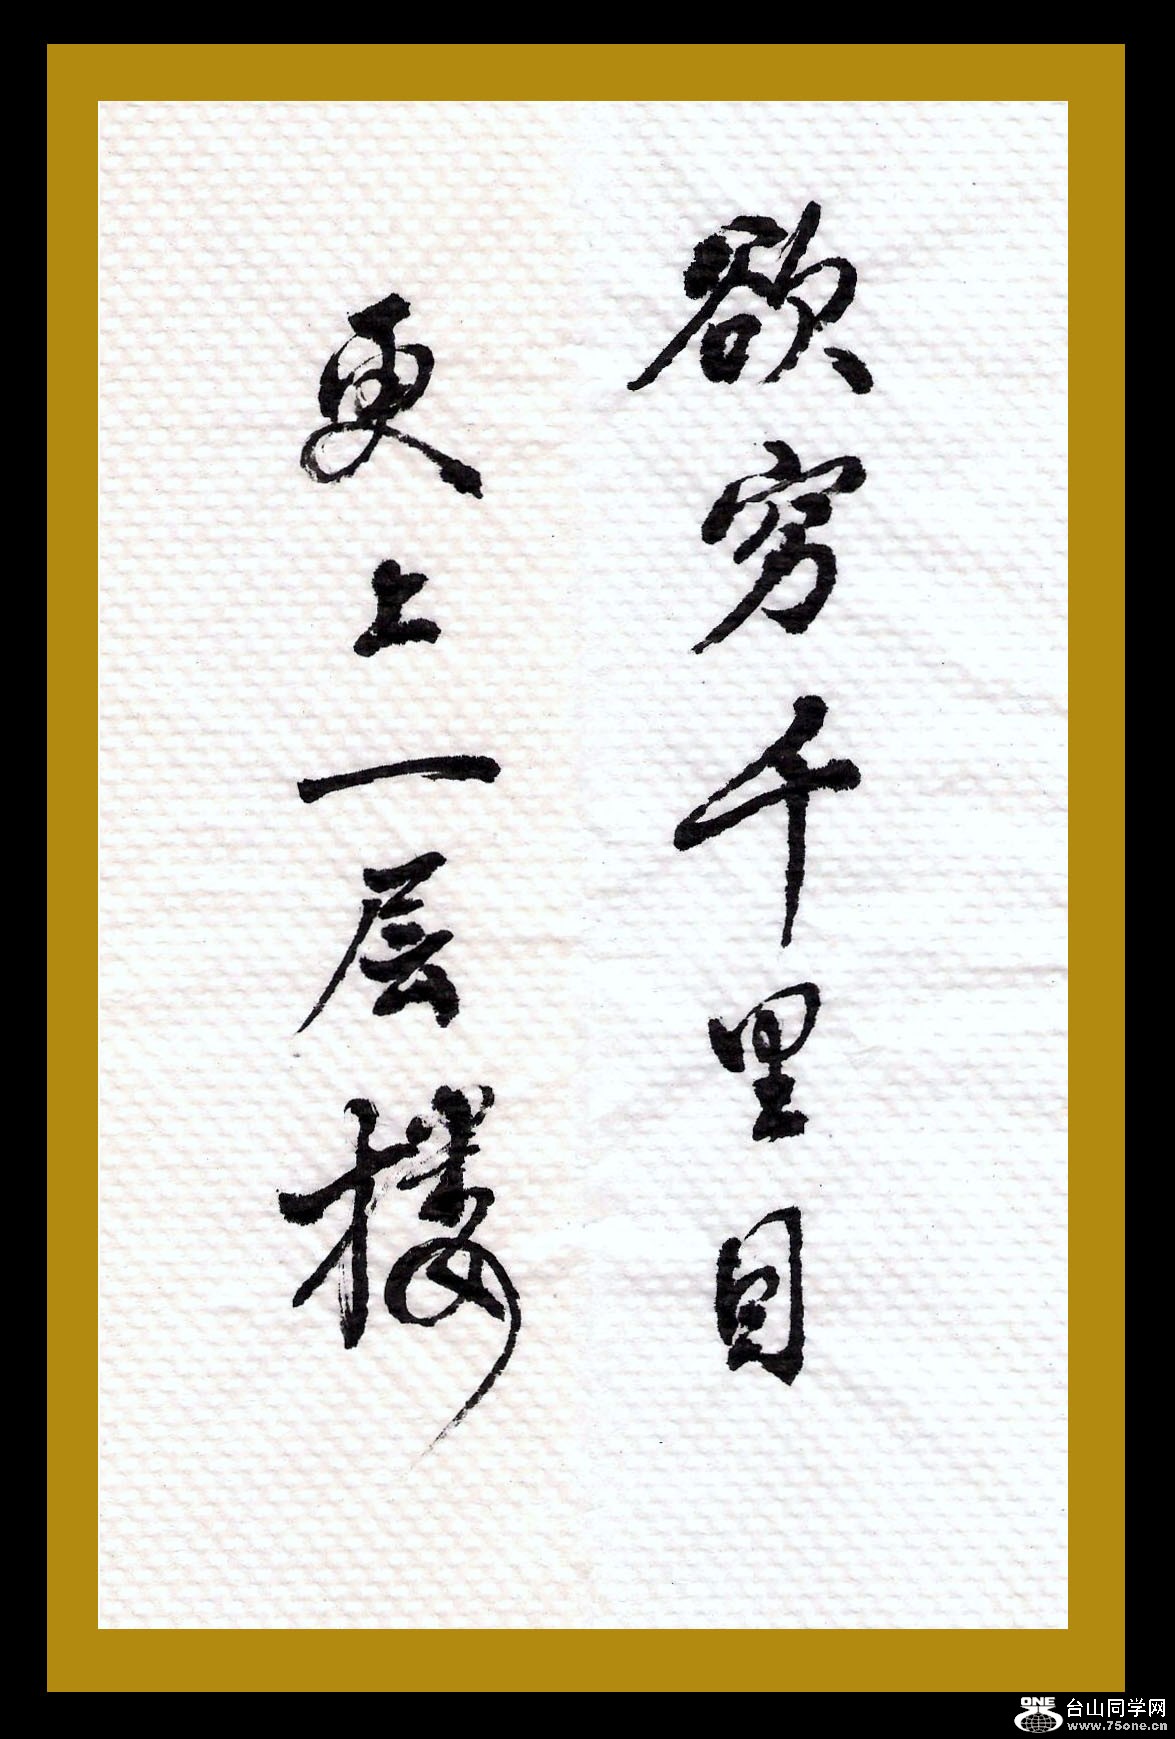 欲穷千里目
更上一层楼
ONE
台山同学网
www.75one.cn